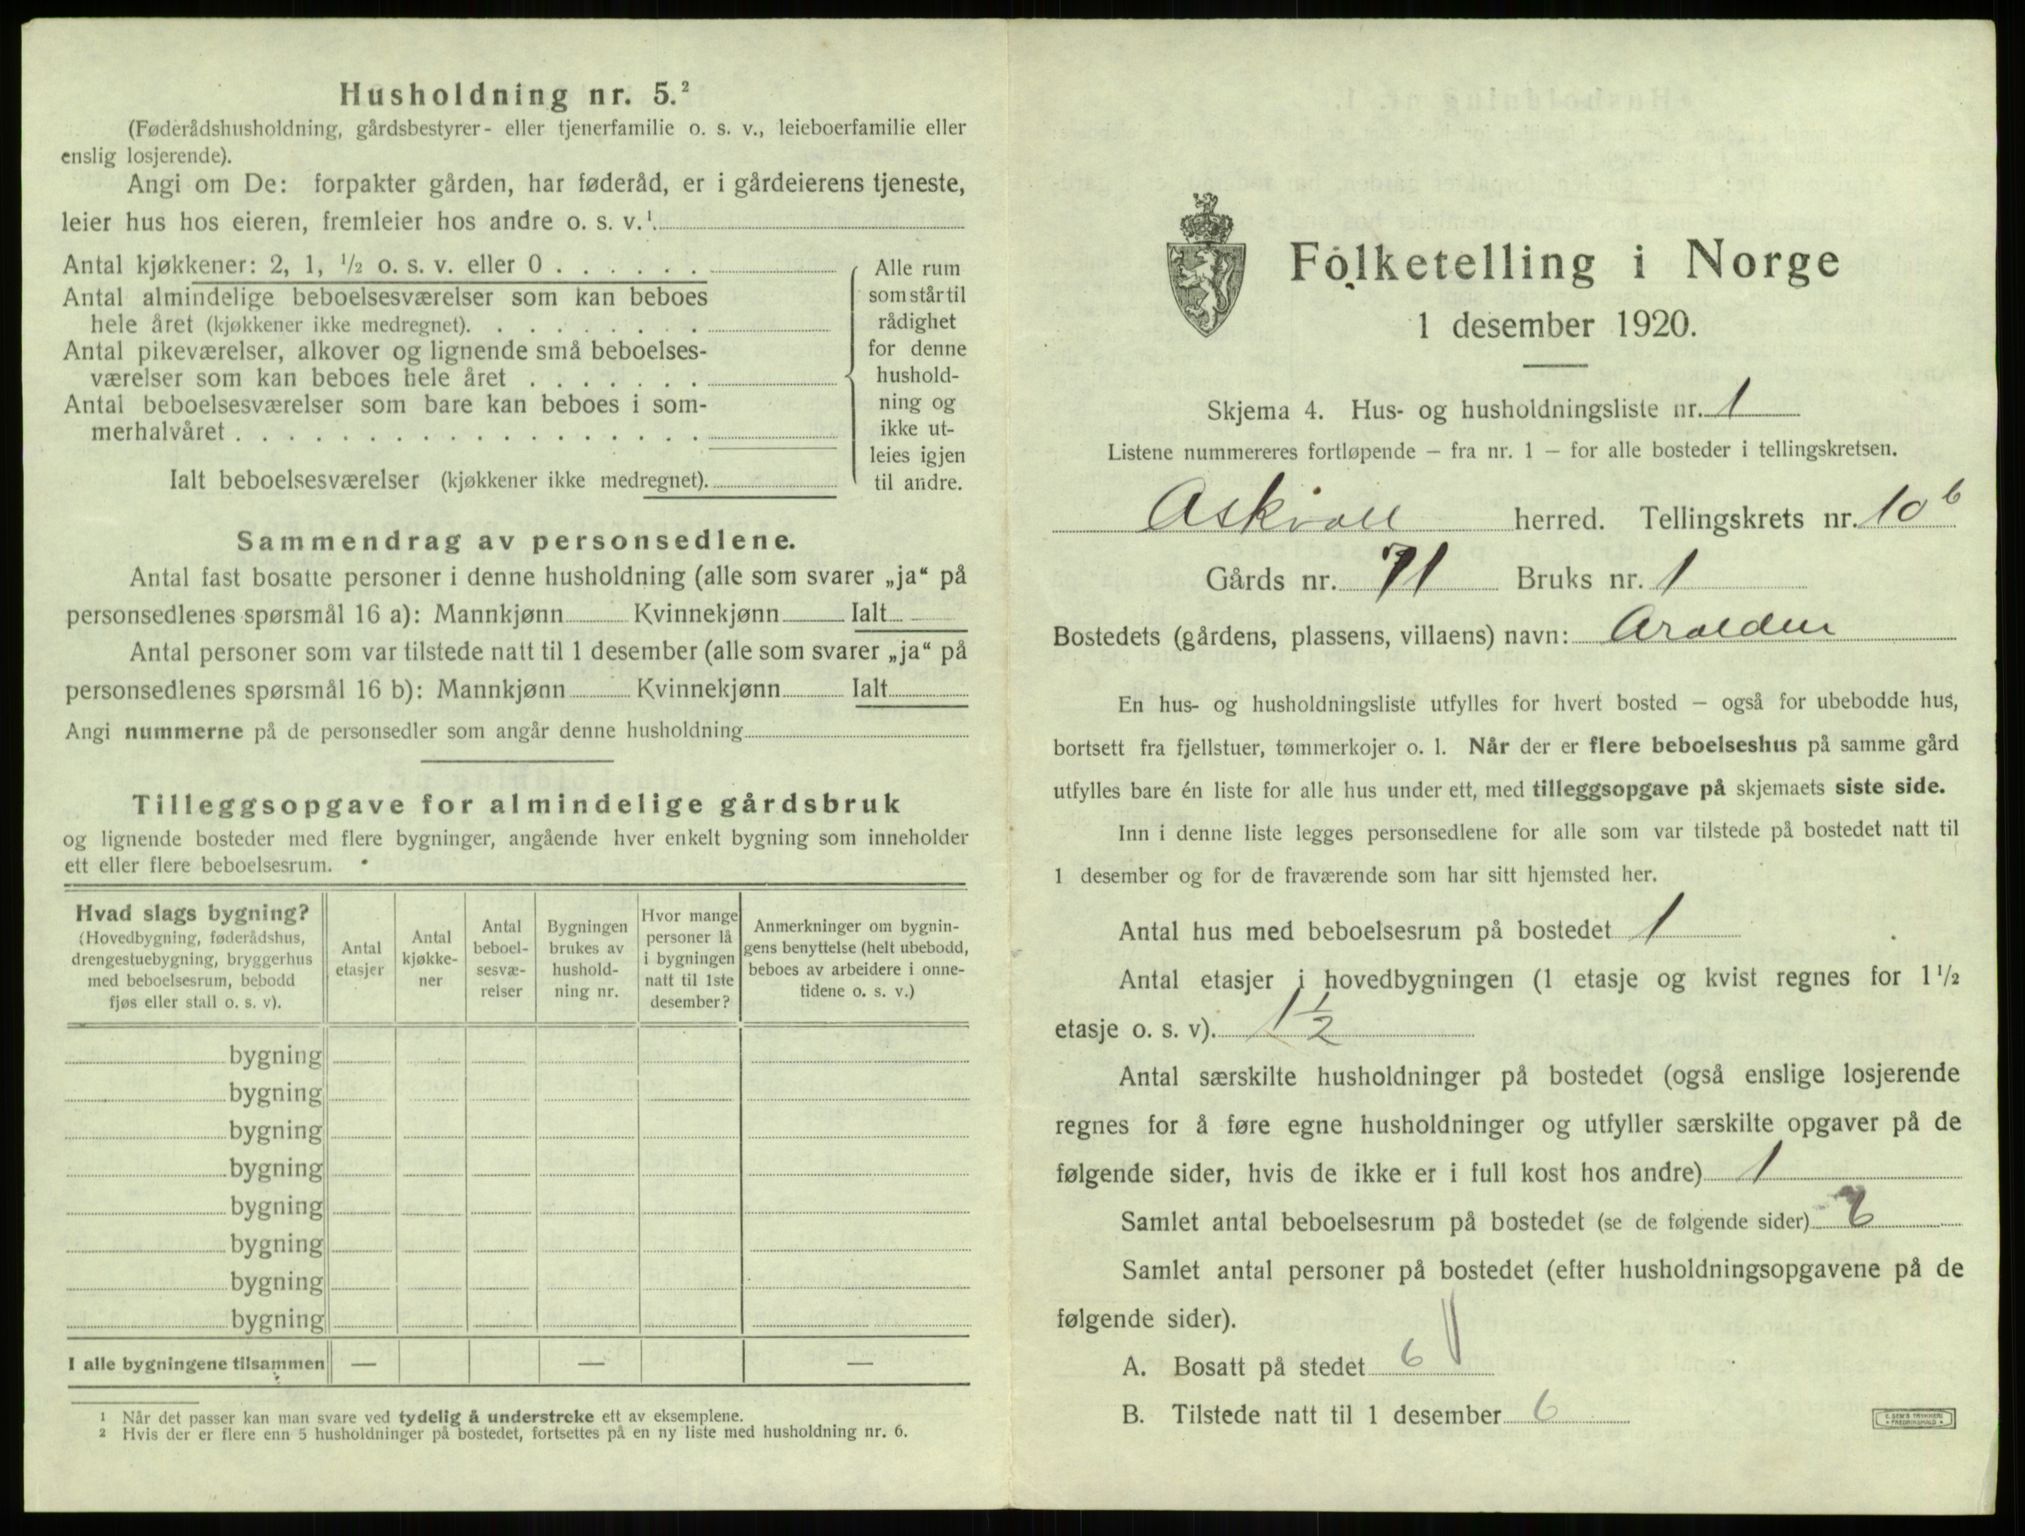 Husholdning nr. 5.²
(Føderådshusholdning, gårdsbestyrer- eller tjenerfamilie o. s. v., leieboerfamilie eller
enslig losjerende).
Angi om De: forpakter gården, har føderåd, er i gårdeierens tjeneste,
leier hus hos eieren, fremleier hos andre o. s. v.¹
Antal kjøkkener: 2, 1, ½ o. s. v. eller 0 . . . . . .
Antal almindelige beboelsesværelser som kan beboes
hele året (kjøkkener ikke medregnet). . . . . . . . .
Antal pikeværelser, alkover og lignende små beboelses-
værelser som kan beboes hele året . . . . . . .
Antal beboelsesværelser som bare kan beboes i som-
merhalvåret . . . . . . . . . . . . . . . . . .
Ialt beboelsesværelser (kjøkkener ikke medregnet).
Alle rum
som står til
rådighet
for denne
hushold-
ning og
ikke ut-
leies igjen
til andre.
Sammendrag av personsedlene.
Antal fast bosatte personer i denne husholdning (alle som svarer „ja“ på
personsedlenes spørsmål 16 a): Mannkjønn Kvinnekjønn Ialt
Antal personer som var tilstede natt til 1 desember (alle som svarer „ja“ på
personsedlenes spørsmål 16 b): Mannkjønn Kvinnekjønn Ialt
Angi nummerne på de personsedler som angår denne husholdning
Tilleggsopgave for almindelige gårdsbruk
og lignende bosteder med flere bygninger, angående hver enkelt bygning som inneholder
ett eller flere beboelsesrum.
Hvad slags bygning?
(Hovedbygning, føderådshus,
drengestuebygning, bryggerhus
med beboelsesrum, bebodd
fjøs eller stall o. s. v).
Antal
etasjer
Antal
kjøkke-
ner
Antal
beboel-
sesvæ-
relser
Bygningen
brukes av
hushold-
ning nr.
Hvor mange
personer lå
i bygningen
natt til 1ste
desember?
Anmerkninger om bygnin-
gens benyttelse (helt ubebodd,
beboes av arbeidere i onne-
tidene o. s. v.)
bygning
bygning
bygning
bygning
bygning
bygning
bygning
bygning
I alle bygningene tilsammen — — —
¹ Når det passer kan man svare ved tydelig å understreke ett av eksemplene.
² Hvis der er flere enn 5 husholdninger på bostedet, fortsettes på en ny liste med husholdning nr. 6.
Folketelling i Norge
1 desember 1920.
Skjema 4. Hus- og husholdningsliste nr. 1
Listene nummereres fortløpende – fra nr. 1 – for alle bosteder i tellingskretsen.
Askvoll herred. Tellingskrets nr. 10 b
Gårds nr. 71 Bruks nr. 1
Bostedets (gårdens, plassens, villaens) navn: Aralden
En hus- og husholdningsliste utfylles for hvert bosted – også for ubebodde hus,
bortsett fra fjellstuer, tømmerkojer o. l. Når der er flere beboelseshus på samme gård
utfylles bare én liste for alle hus under ett, med tilleggsopgave på skjemaets siste side.
Inn i denne liste legges personsedlene for alle som var tilstede på bostedet natt til
1 desember og for de fraværende som har sitt hjemsted her.
Antal hus med beboelsesrum på bostedet 1
Antal etasjer i hovedbygningen (1 etasje og kvist regnes for 1 ½
etasje o. s. v). 1 ½
Antal særskilte husholdninger på bostedet (også enslige losjerende
regnes for å føre egne husholdninger og utfyller særskilte opgaver på de
følgende sider, hvis de ikke er i full kost hos andre) 1
Samlet antal beboelsesrum på bostedet (se de følgende sider)
Samlet antal personer på bostedet (efter husholdningsopgavene på de
følgende sider).
A. Bosatt på stedet 6
B. Tilstede natt til 1 desember 6
E. SEM'S TRYKKERI
FREDRIKSHALD